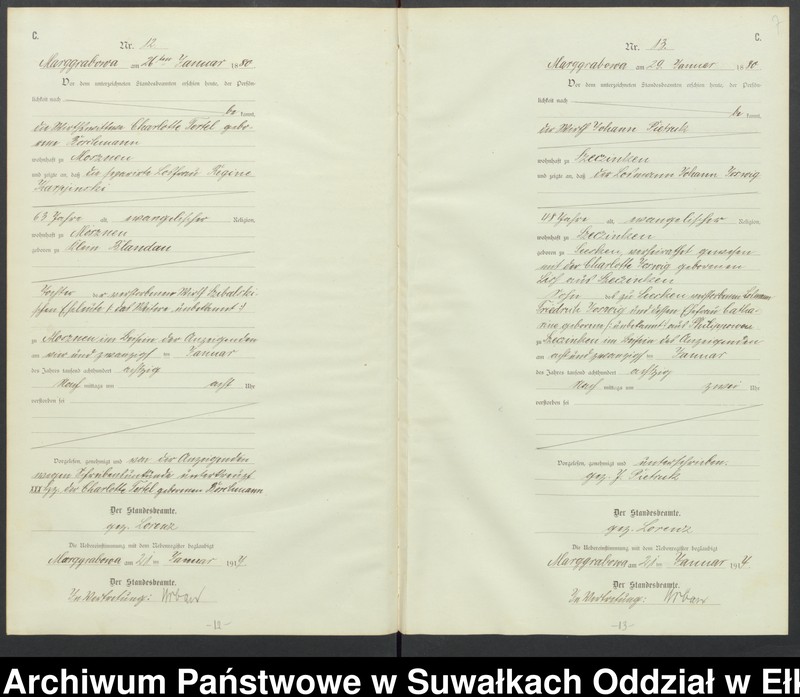 C.
Nr. 12.
Marggrabowa am 26ten Januar 1880
Vor dem unterzeichneten Standesbeamten erschien heute, der Persön-
lichkeit nach
be kannt,
die Wirthswittwe Charlotte gebo-
rene
wohnhaft zu Mooznen
und zeigte an, daß die separirte Losfrau Regine
63 Jahre alt, evangelischer Religion,
wohnhaft zu Mooznen
geboren zu Klein Blandau
Tochter der verstorbenen Wirth
schen Eheleute (: das Weitere unbekannt :)
zu Mooznen im Beisein der Anzeigenden
am vier und zwanzigsten Januar
des Jahres tausend achthundert achtzig
Nach mittags um acht Uhr
verstorben sei
Vorgelesen, genehmigt und von der Anzeigenden
wegen Schreibensunkunde unterkreuzt.
XXX Hz. der Charlotte geborenen
Der Standesbeamte.
gez. Lorenz
Die Uebereinstimmung mit dem Nebenregister beglaubigt
Marggrabowa am 21ten Januar 1914.
Der Standesbeamte.
In Vertretung: Urban
-12-
7
C.
Nr. 13.
Marggrabowa am 29. Januar 1880
Vor dem unterzeichneten Standesbeamten erschien heute, der Persön-
lichkeit nach
be kannt,
der Wirth Johann Pietruk
wohnhaft zu Seczinken
und zeigte an, daß der Losmann Johann
48 Jahre alt, evangelischer Religion,
wohnhaft zu Seczinken
geboren zu verheirathet gewesen
mit der Charlotte geborenen
aus Seczinken
Sohn des zu verstorbenen
Friedrich und dessen Ehefrau Catha-
rine geborene (: unbekannt :) aus
zu Seczinken im Beisein des Anzeigenden
am acht und zwanzigsten Januar
des Jahres tausend achthundert achtzig
Nach mittags um zwei Uhr
verstorben sei
Vorgelesen, genehmigt und unterschrieben:
gez. J. Pietruk
Der Standesbeamte.
gez. Lorenz
Die Uebereinstimmung mit dem Nebenregister beglaubigt
Marggrabowa am 21ten Januar 1914.
Der Standesbeamte.
In Vertretung: Urban
-13-
Archiwum Państwowe w Suwałkach Oddział w Eł